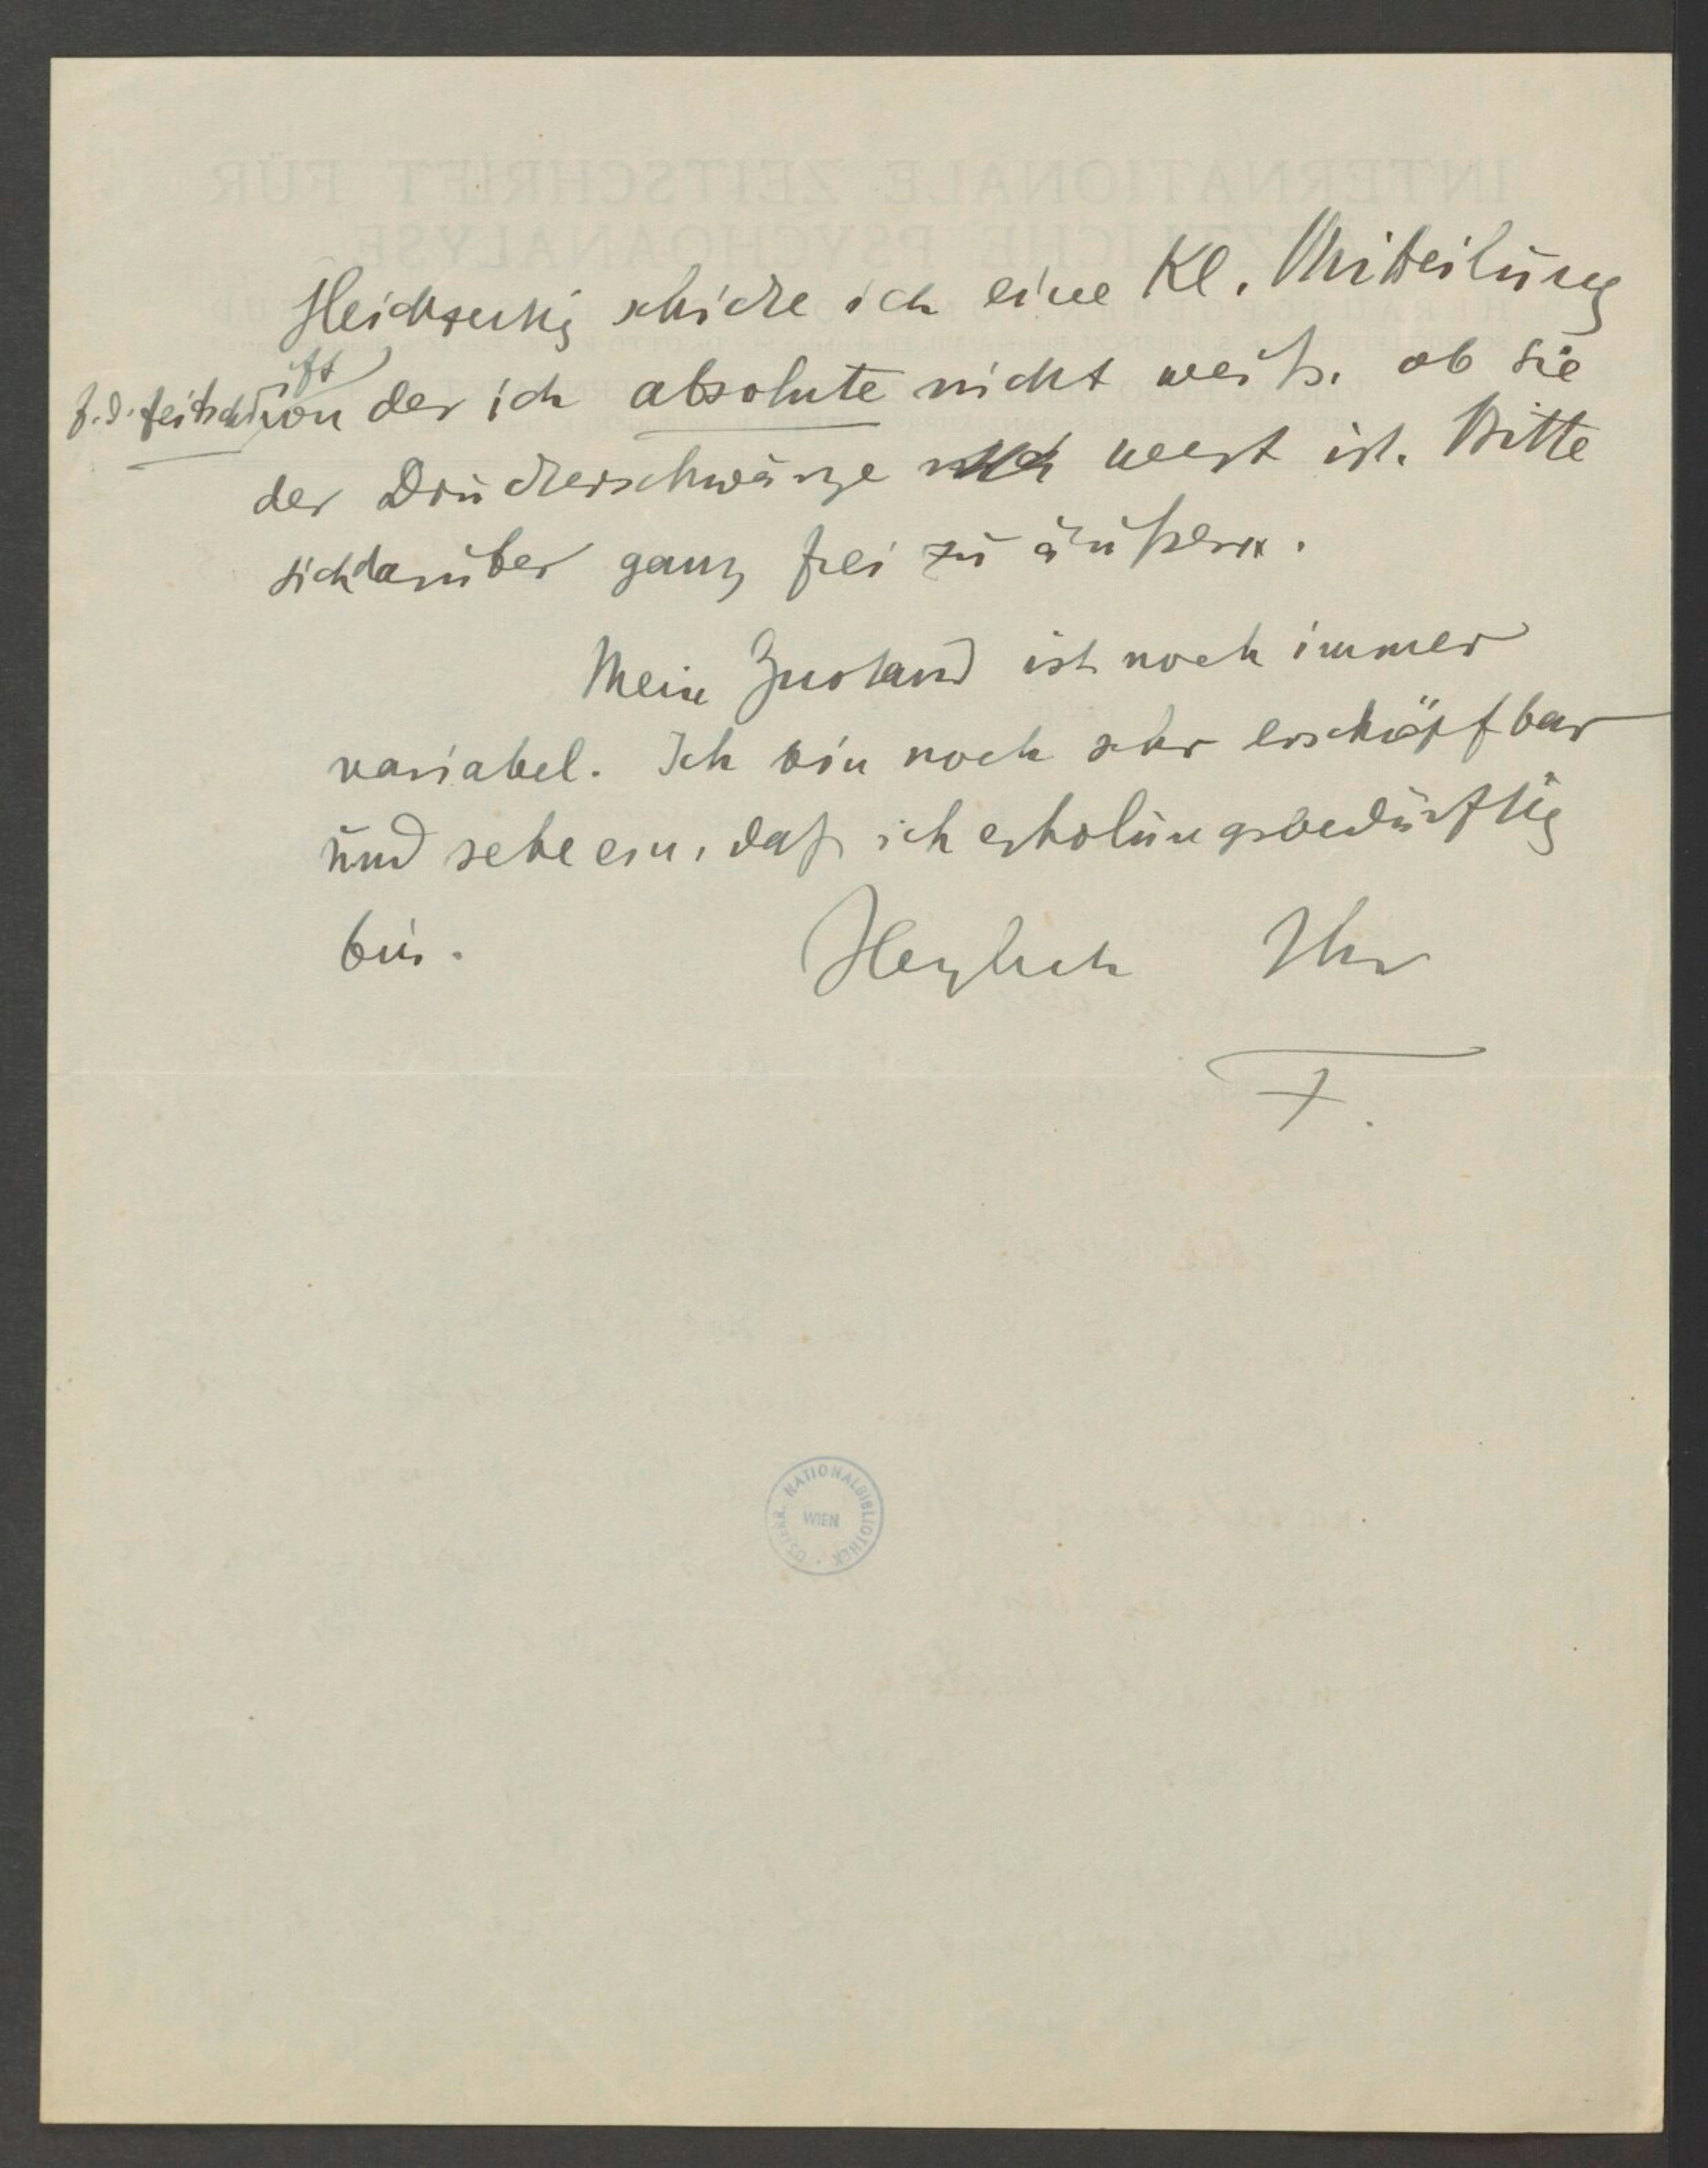 INTERNATIONALE ZEITSCHRIFT FÜR
ÄRZTLICHE PSYCHOANALYSE
Gleichzeitig schicke ich eine Kl. Mitteilung
f. d. Zeitschrift von der ich absolute nicht weiß, ob sie
der Druckerschwärze wert ist. Bitte
sich darüber ganz frei zu äußern.
Mein Zustand ist noch immer
variabel. Ich bin noch sehr erschöpfbar
und sehe ein, daß ich erholungsbedürftig
bin. Herzlich Ihr
F.
ÖSTERR. NATIONALBIBLIOTHEK
WIEN